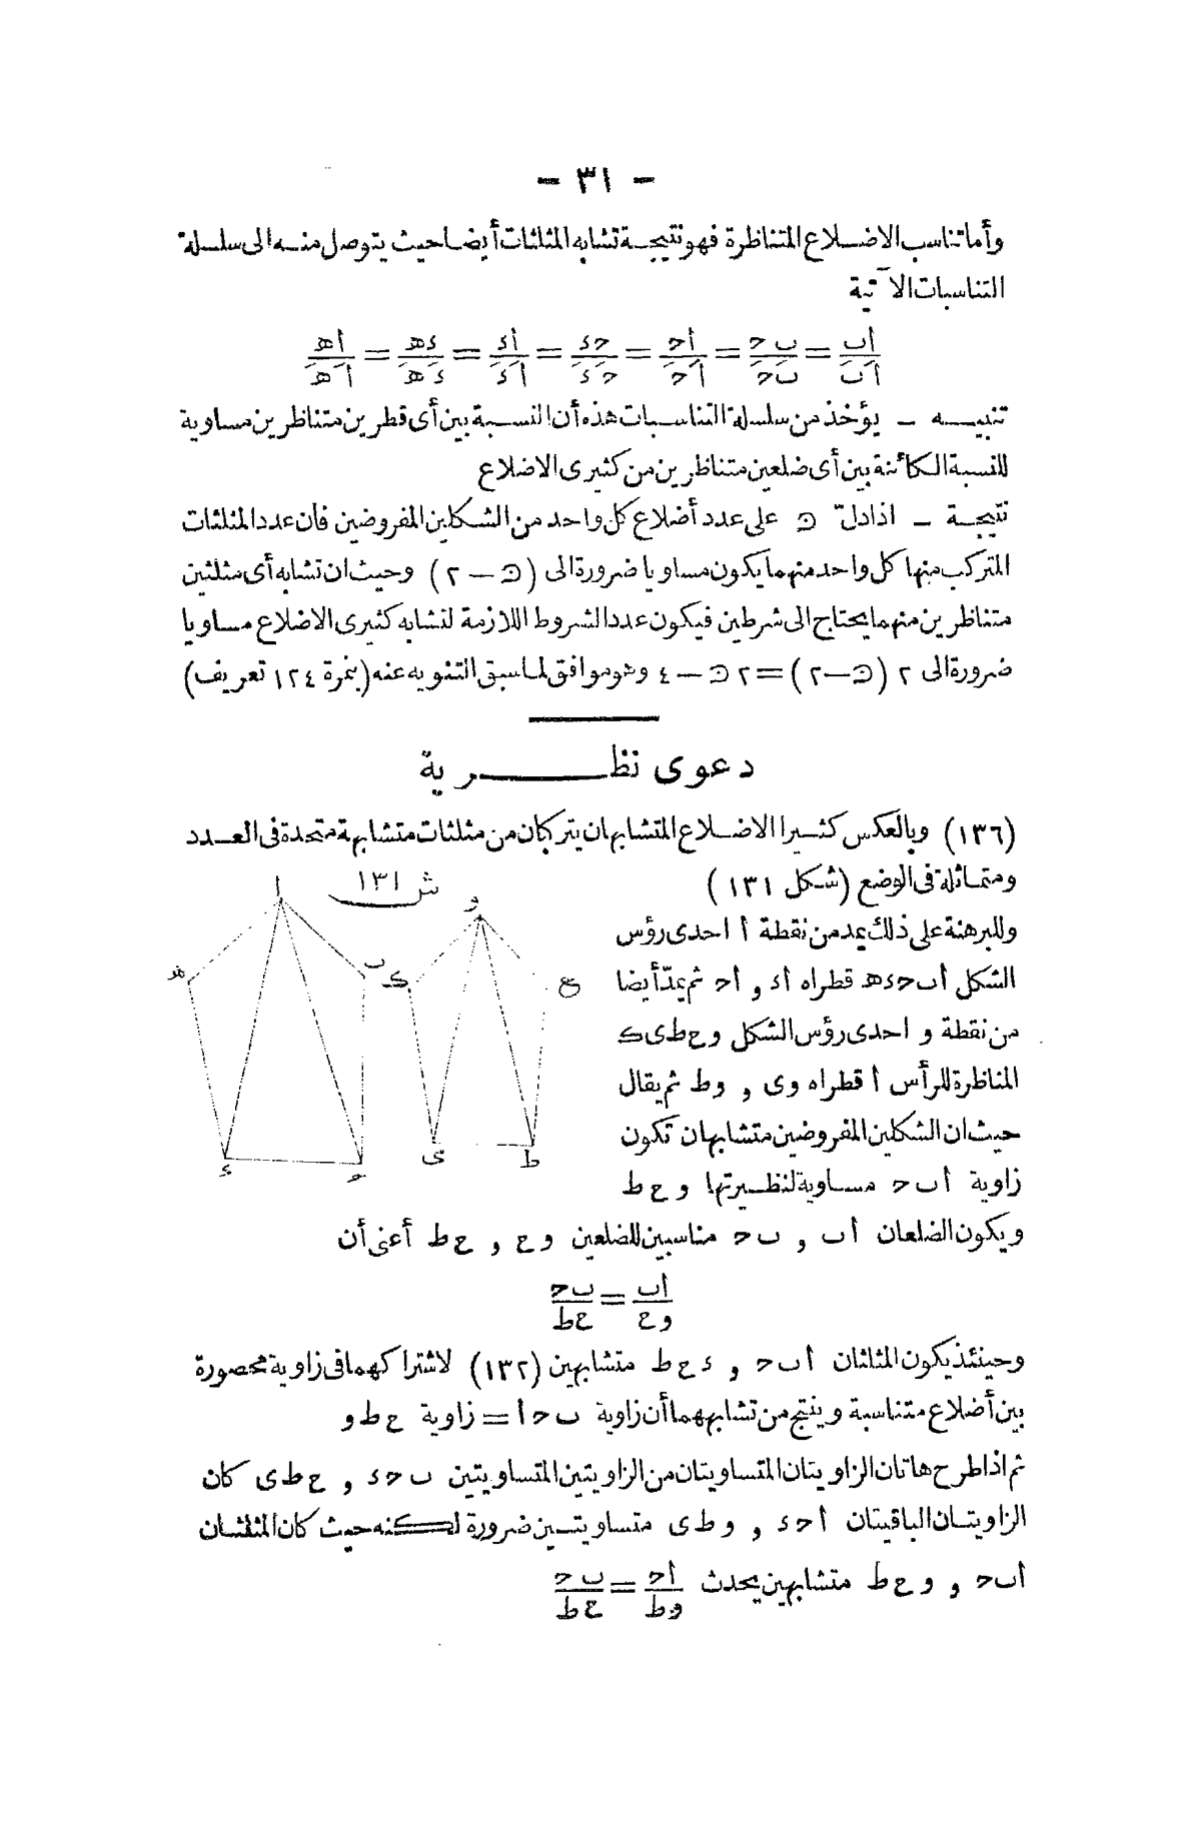 - ٣١ -
وأما تناسب الاضلاع المتناظرة فهو نتيجة تشابه المثلثات أيضا حيث يتوصل منه الى سلسلة
التناسبات الآتية
أب/أَبَ = ب ح/بَحَ = أح/أَحَ = حء/حَءَ = أء/أَءَ = ءھ/ءَھَ = أھ/أَھَ
تنبيه – يؤخذ من سلسلة التناسبات هذه أن النسبة بين أى قطرين متناظرين مساوية
للنسبة الكائنة بين أى ضلعين متناظرين من كثيرى الاضلاع
نتيجة – اذا دلّ ﻥ على عدد أضلاع كل واحد من الشكلين المفروضين فان عدد المثلثات
المتركب منها كل واحد منهما يكون مساويا ضرورة الى (ﻥ – ٢) وحيث ان تشابه أى مثلثين
متناظرين منهما يحتاج الى شرطين فيكون عدد الشروط اللازمة لتشابه كثيرى الاضلاع مساويا
ضرورة الى ٢ (ﻥ–٢) = ٢ ﻥ – ٤ وهو موافق لما سبق التنويه عنه (بنمرة ١٢٤ تعريف)
دعوى نظرية
(١٣٦) وبالعكس كثيرا الاضلاع المتشابهان يتركبان من مثلثات متشابهة متحدة فى العدد
ومتماثلة فى الوضع (شكل ١٣١)
ش ١٣١
ا
و
ھ
ب
ك
ع
ء
ح
ى
ط
وللبرهنة على ذلك يمد من نقطة أ احدى رؤس
الشكل أب حءھ قطراه أء و أح ثم يمدّ أيضا
من نقطة و احدى رؤس الشكل وع طى ك
المناظرة للرأس أ قطراه وى و وط ثم يقال
حيث ان الشكلين المفروضين متشابهان تكون
زاوية أب ح مساوية لنظيرتها وع ط
ويكون الضلعان أب و ب ح مناسبين للضلعين وع و ع ط أعنى أن
أب/وع = ب ح/ع ط
وحينئذ يكون المثلثان أب ح و ءع ط متشابهين (١٣٢) لاشتراكهما فى زاوية محصورة
بين أضلاع متناسبة وينتج من تشابههما أن زاوية ب ح أ = زاوية ع ط و
ثم اذا طرح هاتان الزاويتان المتساويتان من الزاويتين المتساويتين ب حء و ع طى كان
الزاويتان الباقيتان أحء و وطى متساويتين ضرورة لكنه حيث كان المثلثان
أب ح و وع ط متشابهين يحدث أح/وط = ب ح/ع ط